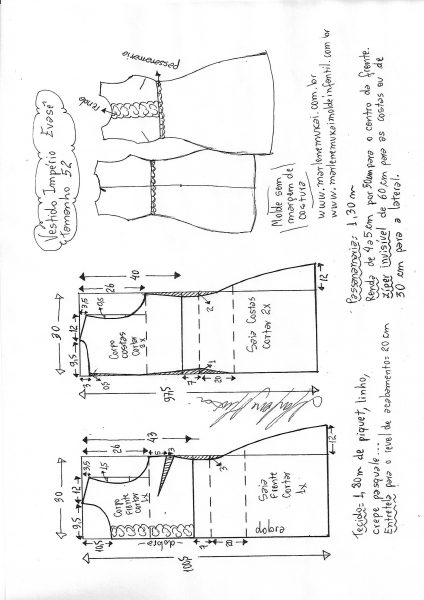 Vestido Império Evasê
Tamanho 52
renda
passamanaria
Molde sem
margem de
costura
www.marlenemukai.com.br
www.marlenemukaimoldeinfantil.com.br
Passamanaria: 1,30 m
Renda de 4 a 5 cm por 30cm para o centro da frente.
Zíper invisível de 60 cm para as costas ou de
30 cm para a lateral.
40
26
3,5
0,5
30
12
9,5
3
0,5
Corpo
costas
cortar
2x
2
1
7
20
Saia Costas
Cortar 2x
12
97,5
43
26
3,5
1,5
30
12
9,5
10,5
Corpo
frente
cortar
1x
5
3
3
dobra
7
20
Saia
Frente
Cortar
1x
dobra
12
100,5
Tecido= 1,80m de piquet, linho,
crepe pasquale...
Entretela para o revel de acabamento= 20 cm